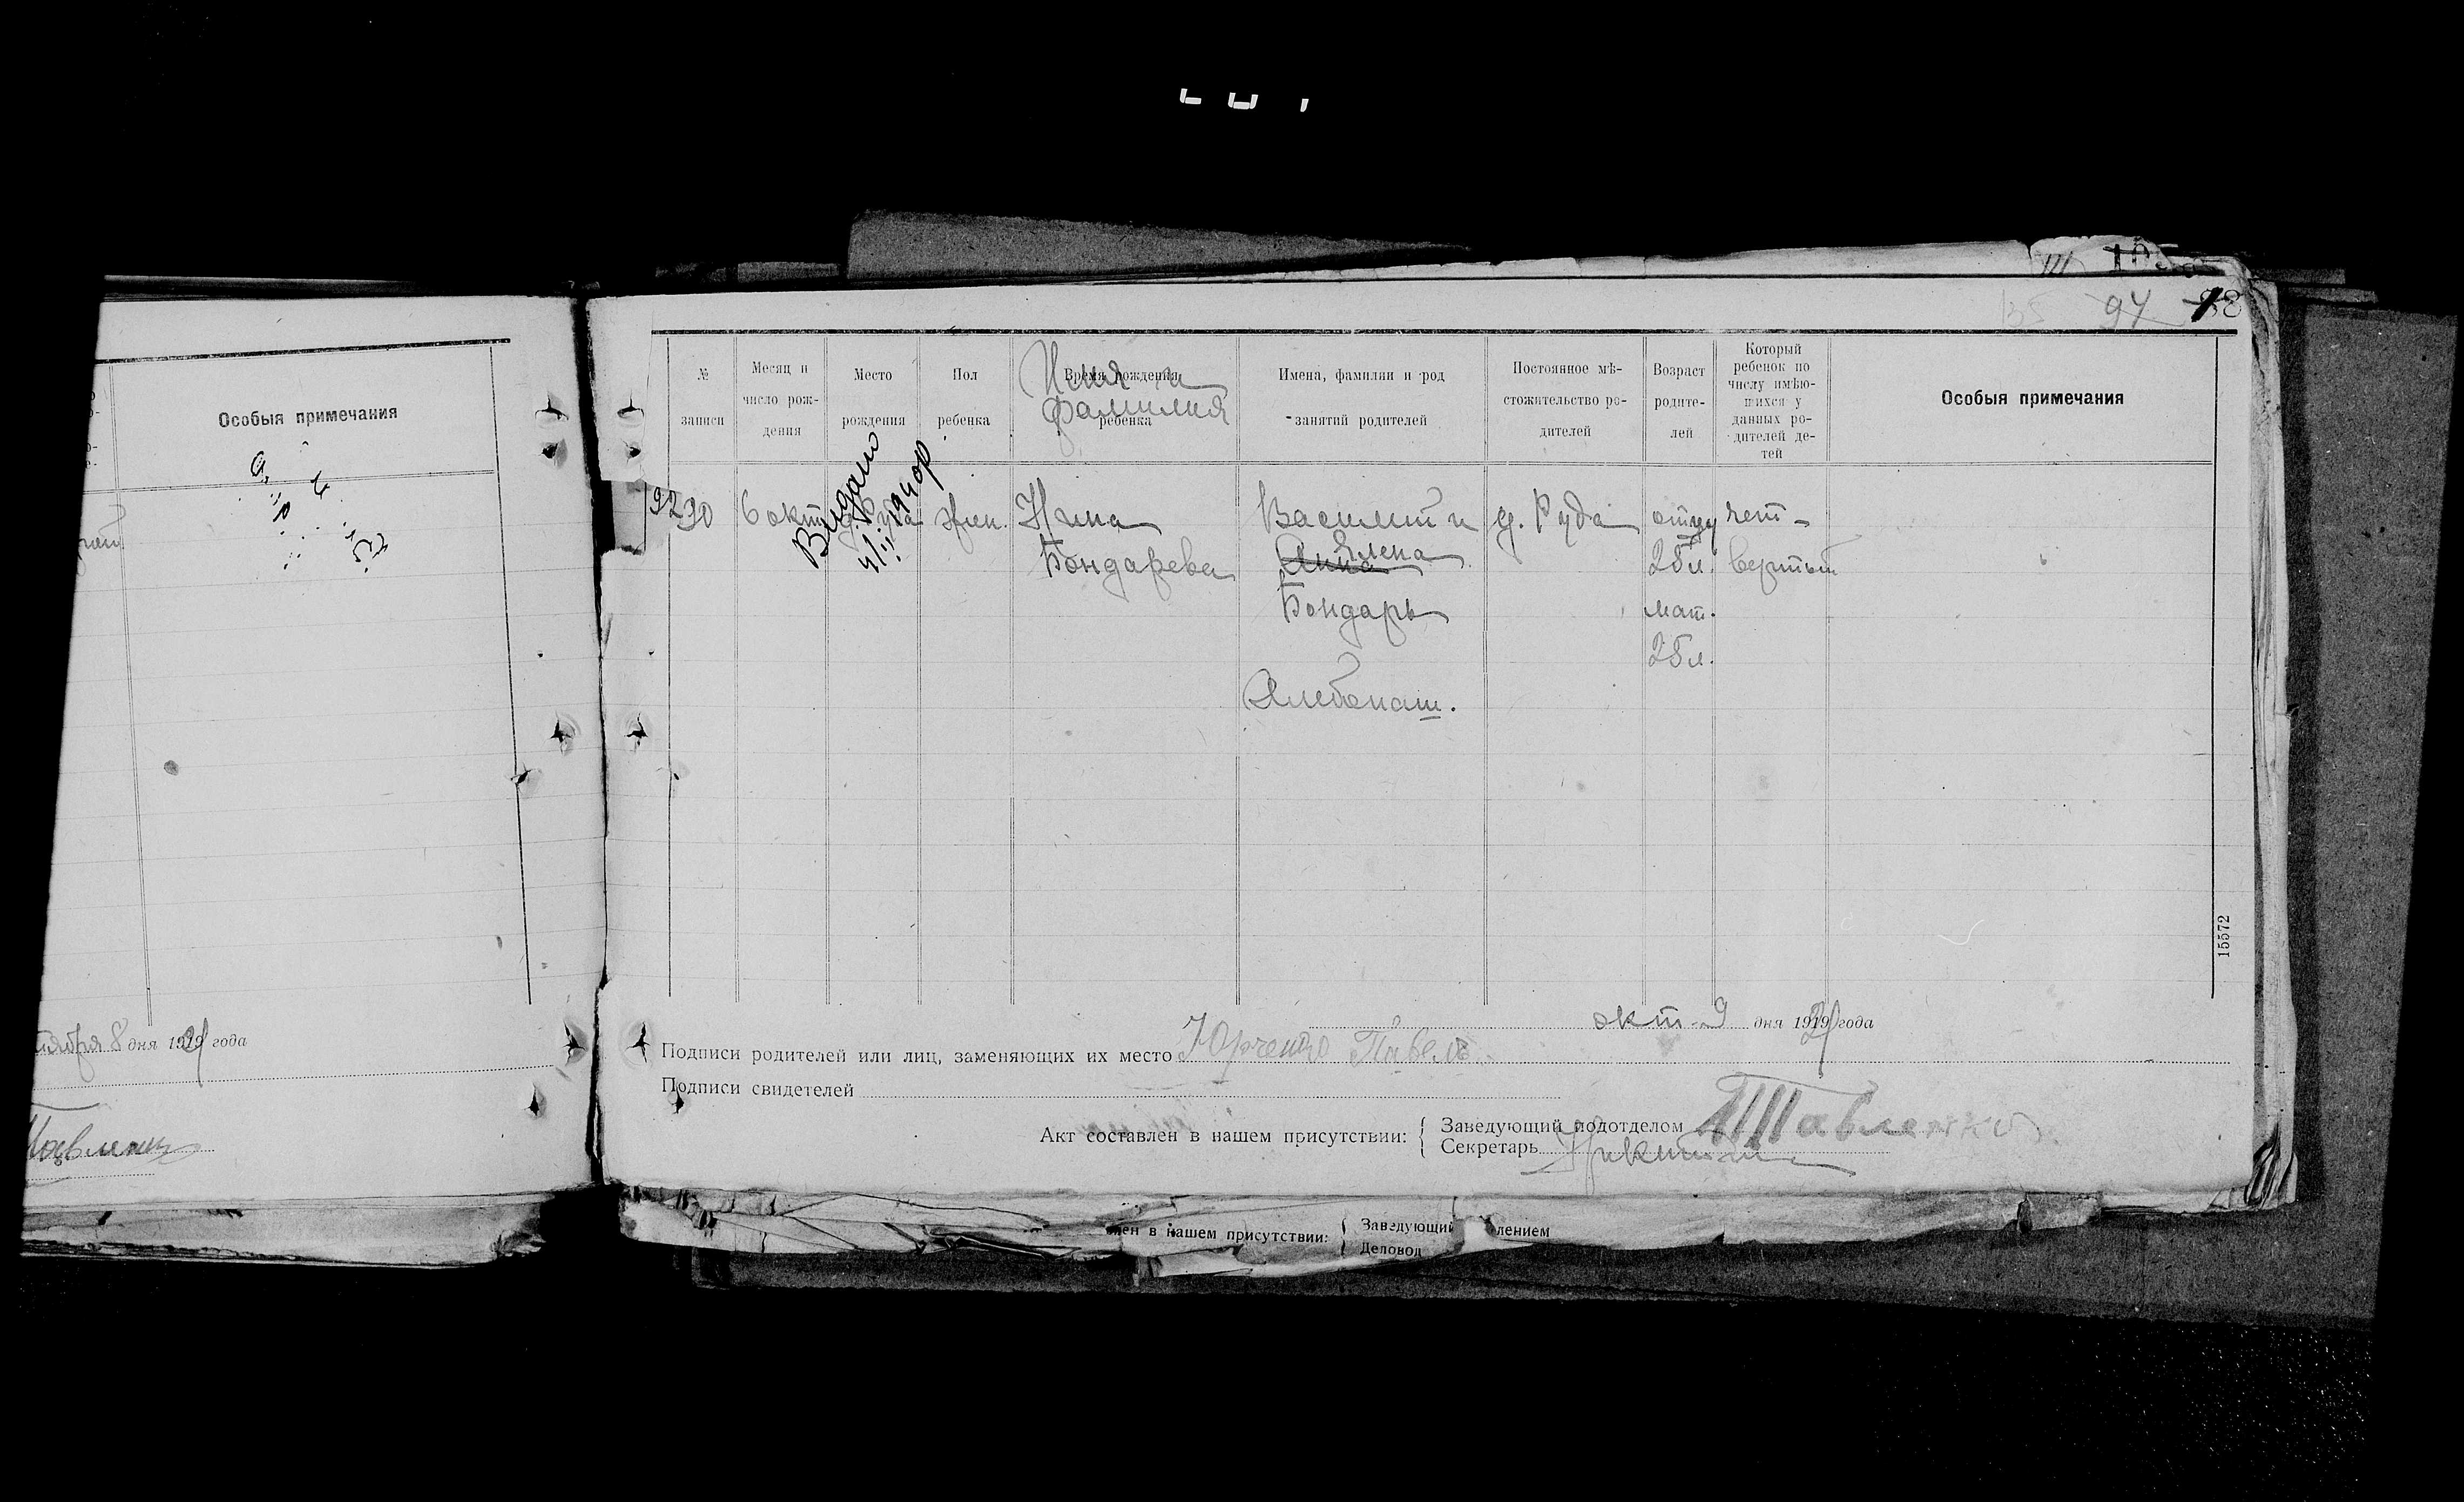 94
Особыя примечания
8 дня 1921 года
№ записи
Месяц и число рождения
Место рождения
Пол ребенка
Время рождения ребенка
Имя и фамилия
Имена, фамилии и род занятий родителей
Постоянное мѣстожительство родителей
Возраст родителей
Который ребенок по числу имѣющихся у данных родителей детей
Особыя примечания
Выдано
6 окт.
жен.
Нина
Бондарева
Василий и
Анна Елена
Бондарь
д. Руда
отцу
28 л.
мат.
25 л.
чет-
вертый
15572
окт. 9 дня 1921 года
Подписи родителей или лиц, заменяющих их место Юрченко Павел
Подписи свидетелей
Акт составлен в нашем присутствии:
Заведующий подотделом Павленко
Секретарь
в нашем присутствии:
Заведующий
лением
Деловод